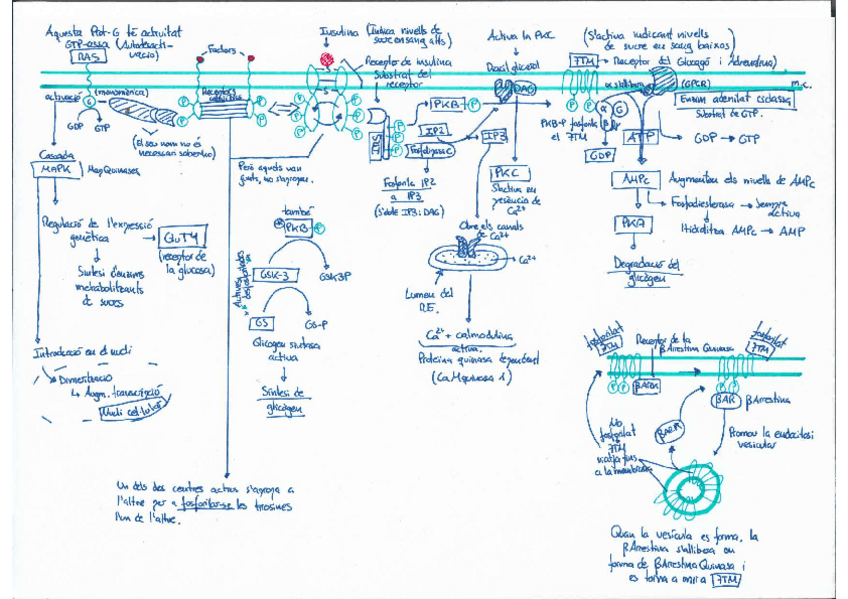 Aquesta Prot-G té activitat
GTP-assa (Autodesacti-
vació)
RAS
(monomèrica)
activació
G
GDP
GTP
(El seu nom no és
necessari saber-lo)
Cascada
MAPK
MapQuinases
Regulació de l'expressió
genètica
GluT4
(receptor de
la glucosa)
Síntesi d'enzims
metabolitzants
de sucres
Introducció en el nucli
Dimerització
Augm. transcripció
Nucli cel·lular
Factors
Receptors
Però aquests van
junts, no s'agrupen.
Un dels dos centres actius s'agrupa a
l'altre per a fosforilar-se les tirosines
l'un de l'altre.
Insulina (Indica nivells de
sucre en sang alts)
Receptor de insulina
Substrat del
receptor
S
S
P
IRS
PKB
P
IP2
Fosfolipasa C
IP3
Fosforila IP2
a IP3
(S'obté IP3 i DAG)
també
PKB
P
GSK-3
GSK3P
GS
GS-P
Glicogen sintasa
activa
Síntesi de
glicògen
Activa la PKC
Diacilglicerol
DAG
PKC
S'activa en
presència de
Ca2+
Obre els canals
de Ca2+
Ca2+
Lumen del
R.E.
Ca2+ + calmodulina
activa.
Proteïna quinasa dependent
(CaMquinasa 1)
(S'activa indicant nivells
de sucre en sang baixos)
7TM
Receptor del Glucagó i Adrenalina)
(GPCR)
m.c.
Enzim adenilat ciclassa
Substrat de GTP.
PKB-P fosforila
el 7TM
α
G
β
γ
GDP
ATP
GDP → GTP
AMPc
Augmenten els nivells de AMPc
Fosfodiesterasa → Sempre
activa
Hidrolitza AMPc → AMP
PKA
Degradació del
glicògen
fosforilat
7TM
Receptor de la
βArrestina Quinasa
fosforilat
7TM
BARK
BAR
βArrestina
Promou la endocitosi
vesicular
BARK
No
fosforilat
7TM
a la membrana
Quan la vesícula es forma, la
βArrestina s'allibera en
forma de βArrestina Quinasa i
es torna a unir a 7TM